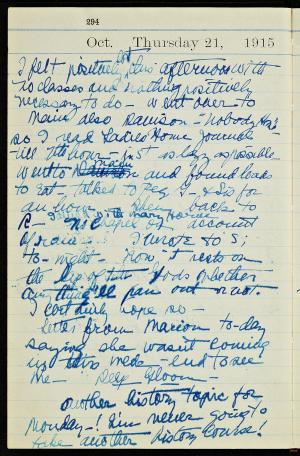 294
Oct. Thursday 21, 1915
I felt positively lost this afternoon with
no classes and nothing positively
necessary to do - went over to
main also Denison - nobody home
so I read Ladies Home Journals
till the hour just as lazy as possible
went to main and found leads
to eat - talked to Peg G. + Sis for
an hour then back to
R - no chapel on account
of
with Mary
I wrote to S;
to-night - now it rests on
the lap of the Gods whether
anything'll pan out or not.
I certainly hope so -
letter from Marion to-day
saying she wasn't coming
up this week-end to see
me - Deep Gloom -
another history topic for
Monday -! I'm never going to
take another history course!